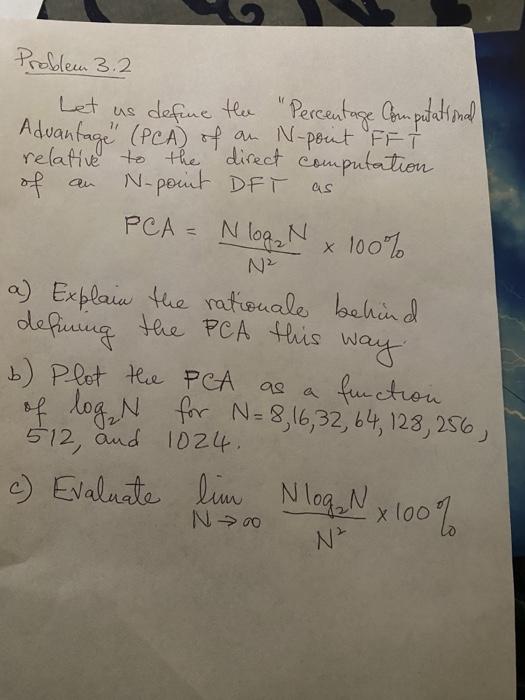 Problem 3.2
Let us define the "Percentage Computational
Advantage" (PCA) of an N-point FFT
relative to the direct computation
of an N-point DFT as
PCA = N log₂N / N² × 100%
a) Explain the rationale behind
defining the PCA this way.
b) Plot the PCA as a function
of log₂N for N=8,16,32,64,128,256,
512, and 1024.
c) Evaluate lim N→∞ N log₂N / N² × 100%